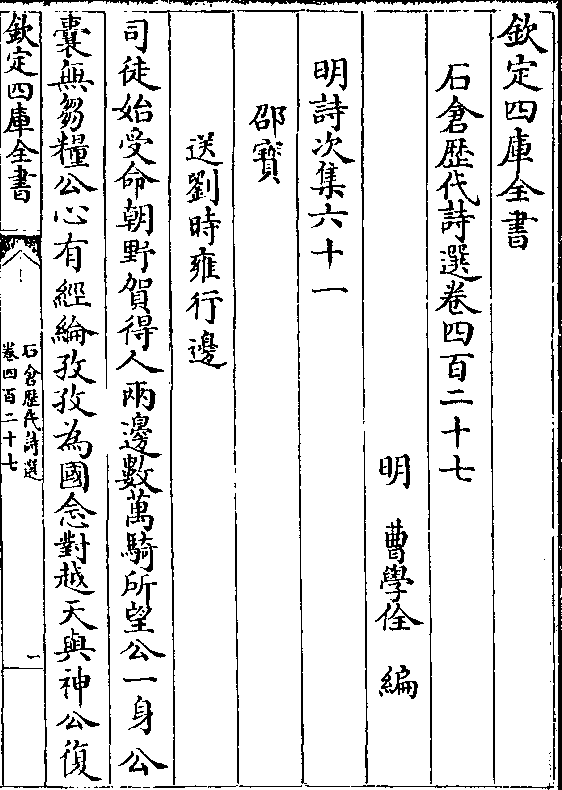 欽定四庫全書
石倉歴代詩選卷四百二十七
明　曹學佺　編
明詩次集六十一
邵寳
送劉時雍行邊
司徒始受命朝野賀得人兩邊數萬騎所望公一身公
囊無芻糧公心有經綸孜孜為國念對越天與神公復
欽定四庫全書
石倉歴代詩選
卷四百二十七
一